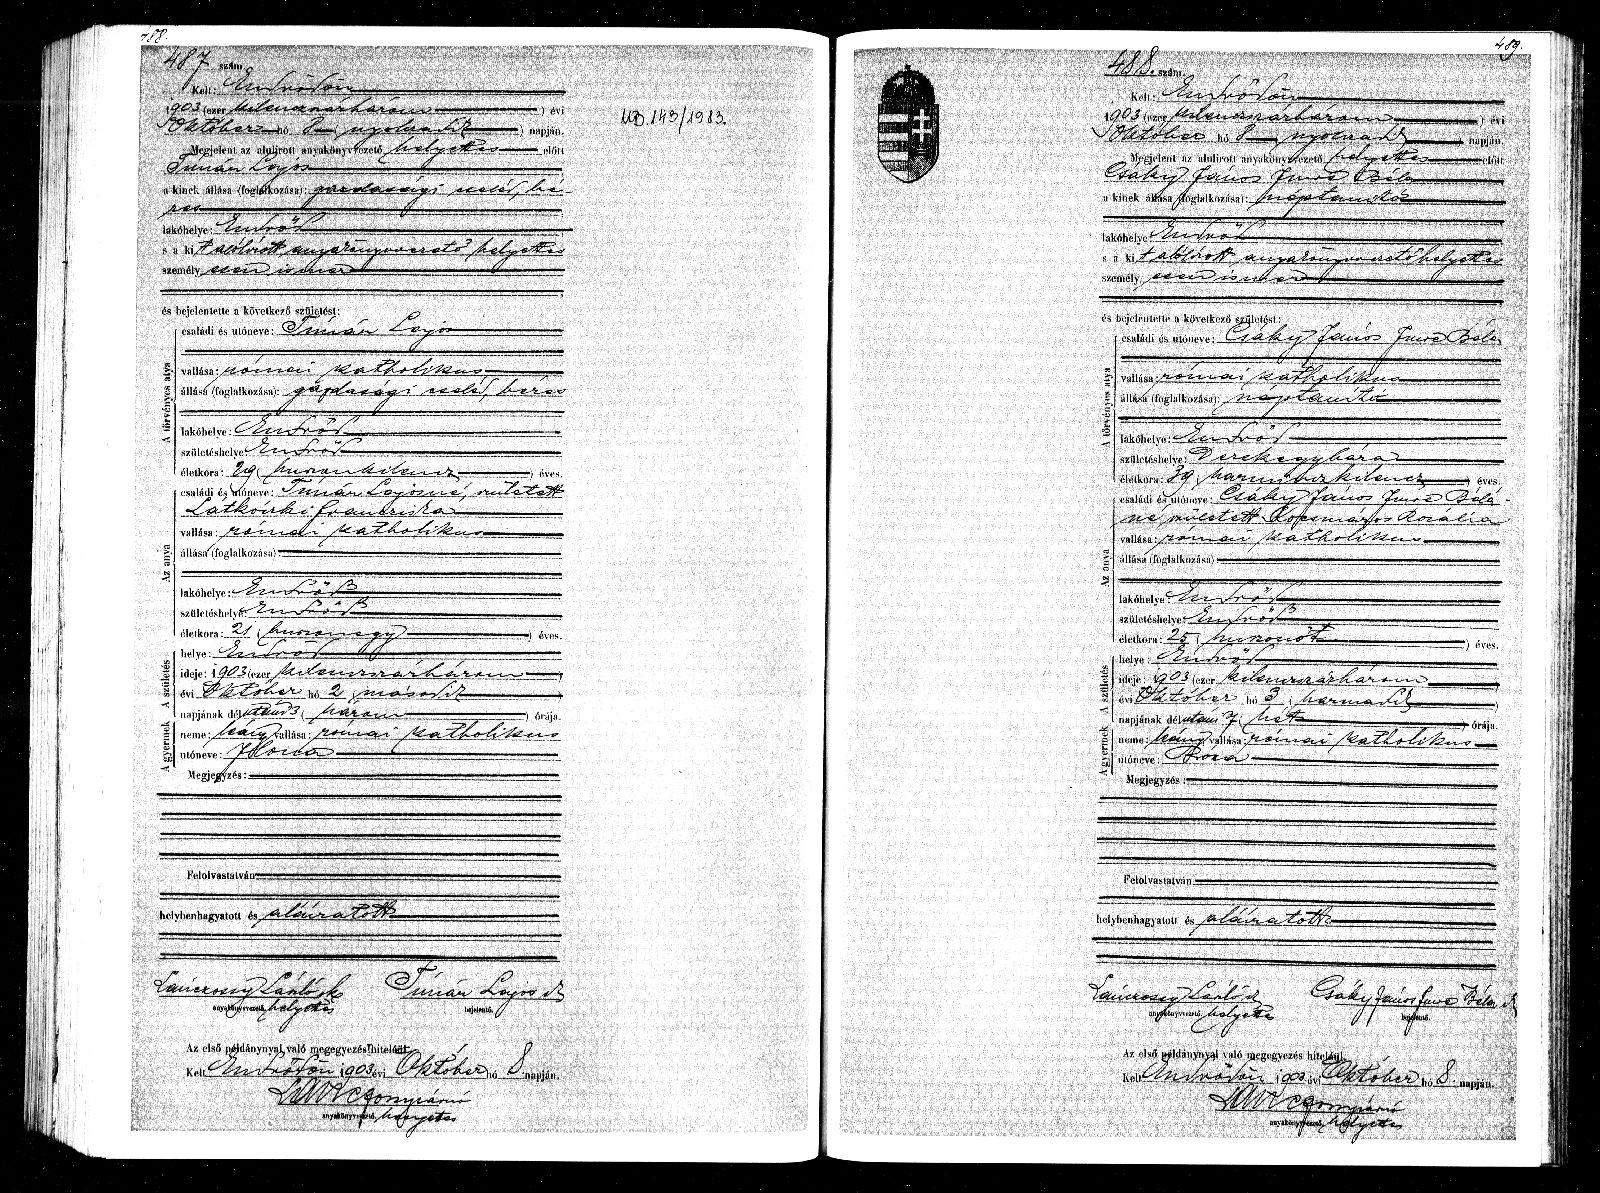 488.
487 szám
Kelt: Endrődön
1903 (ezer kilenczszázhárom ) évi
Október hó 8 nyolczadik ) napján.
Megjelent az alulirott anyakönyvvezető helyettes előtt
Timár Lajos
a kinek állása (foglalkozása): gazdasági cseléd, bé-
res
lakóhelye: Endrőd
s a kit alólírott anyakönyvvezető helyettes
személyesen ismer
és bejelentette a következő születést:
A törvényes atya
családi és utóneve: Timár Lajos
vallása: római katholikus
állása (foglalkozása): gazdasági cseléd, béres
lakóhelye: Endrőd
születéshelye: Endrőd
életkora: 29 ( huszonkilencz ) éves.
Az anya
családi és utóneve: Timár Lajosné, született
Latkóczki Francziska
vallása: római katholikus
állása (foglalkozása):
lakóhelye: Endrőd
születéshelye: Endrőd
életkora: 21 ( huszonegy ) éves.
A születés
helye: Endrőd
ideje: 1903 (ezer kilenczszázhárom )
évi Október hó 2 második
napjának délután 3 ( három ) órája.
A gyermek
neme: leány vallása: római katholikus
utóneve: Ilona
Megjegyzés:
Felolvastatván
helybenhagyatott és aláiratott
László sk
anyakönyvvezető helyettes
Timár Lajos sk
bejelentő.
Az első példánynyal való megegyezés hiteléül:
Kelt Endrődön 1903 évi Október hó 8 napján.
anyakönyvvezető, helyettes
143/1983.
489.
488. szám.
Kelt: Endrődön
1903 (ezer kilenczszázhárom ) évi
Október hó 8 nyolczadik ) napján.
Megjelent az alulirott anyakönyvvezető helyettes előtt
Csáky János Imre Béla
a kinek állása (foglalkozása): néptanító
lakóhelye: Endrőd
s a kit alólírott anyakönyvvezető helyettes
személyesen ismer
és bejelentette a következő születést:
A törvényes atya
családi és utóneve: Csáky János Imre Béla
vallása: római katholikus
állása (foglalkozása): néptanító
lakóhelye: Endrőd
születéshelye: Derekegyháza
életkora: 39 ( harminczkilencz ) éves.
Az anya
családi és utóneve: Csáky János Imre Bélá-
né, született Kocsmáros Rozália
vallása: római katholikus
állása (foglalkozása)
lakóhelye: Endrőd
születéshelye: Endrőd
életkora: 25 ( huszonöt ) éves.
A születés
helye: Endrőd
ideje: 1903 (ezer kilenczszázhárom )
évi Október hó 3 harmadik )
napjának délután 7 ( hét ) órája.
A gyermek
neme: leány vallása: római katholikus
utóneve:
Megjegyzés:
Felolvastatván
helybenhagyatott és aláiratott
László sk
anyakönyvvezető, helyettes
Csáky János Imre Béla sk
bejelentő.
Az első példánynyal való megegyezés hiteléül:
Kelt Endrődön 1903 évi Október hó 8 napján.
anyakönyvvezető, helyettes